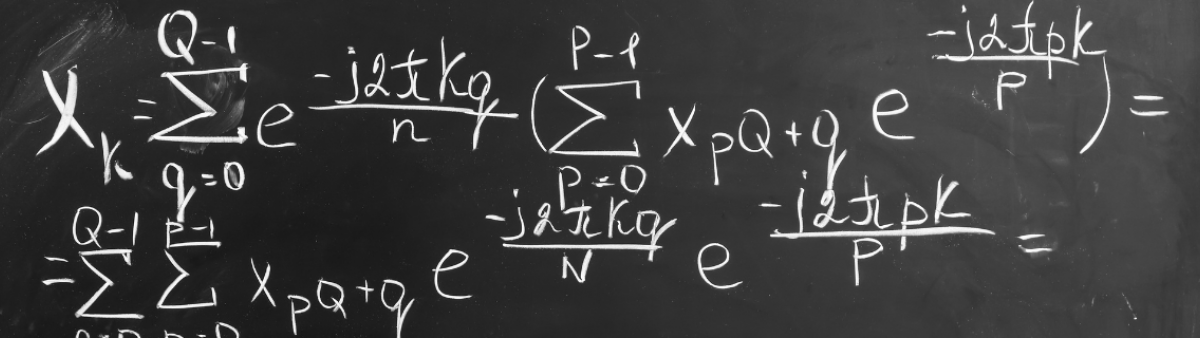 X_k = \sum_{q=0}^{Q-1} e^{\frac{-j2\pi kq}{n}} ( \sum_{p=0}^{P-1} x_{pQ+q} e^{\frac{-j2\pi pk}{P}} ) =
= \sum_{q=0}^{Q-1} \sum_{p=0}^{P-1} x_{pQ+q} e^{\frac{-j2\pi kq}{N}} e^{\frac{-j2\pi pk}{P}} =